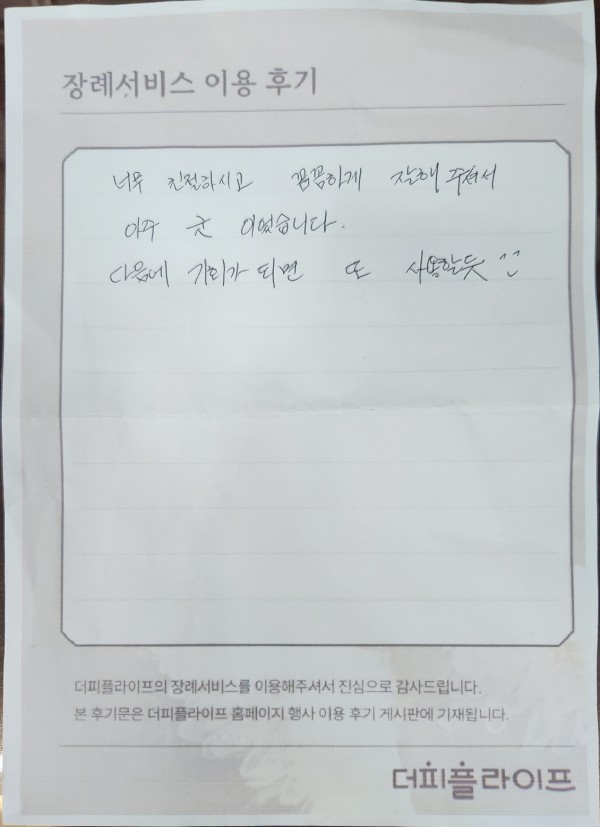 장례서비스 이용 후기
너무 친절하시고 꼼꼼하게 잘해 주셔서
아주 굿 이었습니다.
다음에 기회가 되면 또 사용할듯 ^^
더피플라이프의 장례서비스를 이용해주셔서 진심으로 감사드립니다.
본 후기문은 더피플라이프 홈페이지 행사 이용 후기 게시판에 기재됩니다.
더피플라이프